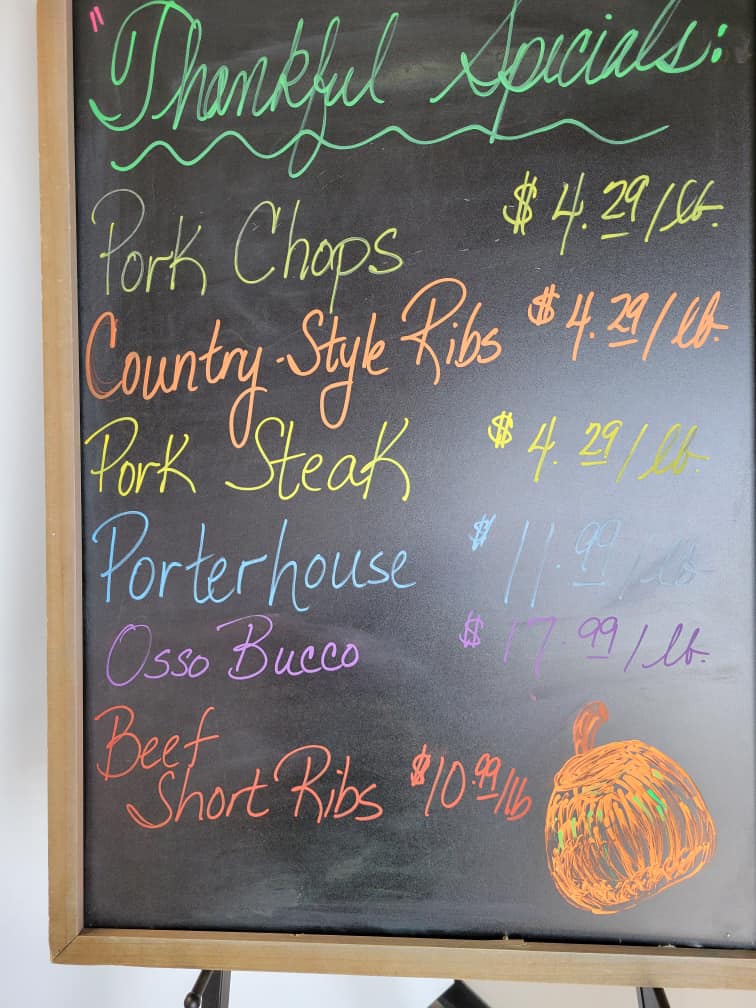 " Thankful Specials:
Pork Chops $4.29/lb.
Country-Style Ribs $4.29/lb.
Pork Steak $4.29/lb.
Porterhouse $11.99/lb
Osso Bucco $17.99/lb.
Beef
Short Ribs $10.99/lb